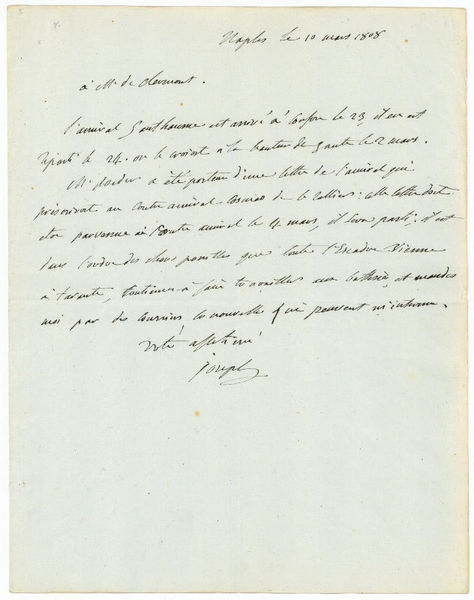 Naples le 10 mars 1808
à Mr. de Clermont.
l'amiral Ganthaume est arrivé à Corfou le 23, il en est
reparti le 24. on le croioit à la hauteur de le 2 mars.
Mr. a été porteur d'une lettre de l'amiral qui
prescrivoit au Contre amiral Cosmao de le rallier: cette lettre doit
etre parvenue au Contre amiral le 4 mars, il sera parti: il est
dans l'ordre des choses possibles que toute l'Escadre vienne
à Tarente, Continuez à faire travailler aux batteries, et mandez
moi par des couriers les nouvelles qui peuvent m'interesser.
votre affectionné
Joseph